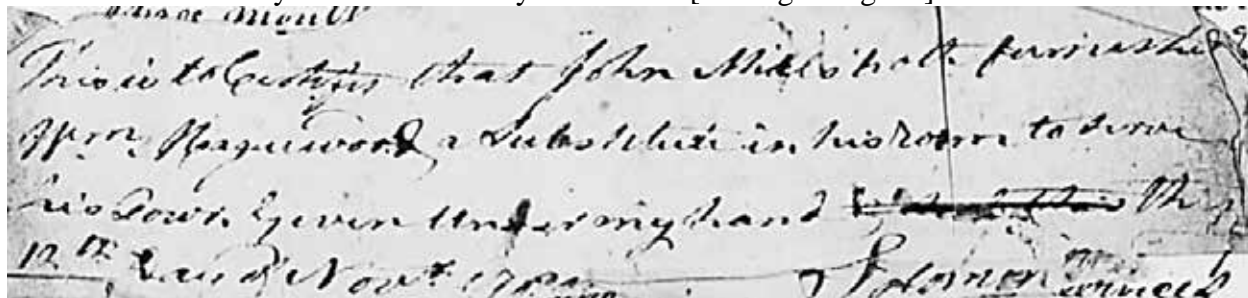 three mont
This is to Certify that John Mills hath furnished
Wm. Hagewood, a Substitute in his room to serve
his Town Given Under my hand this
12th day of Novr.
Solomon